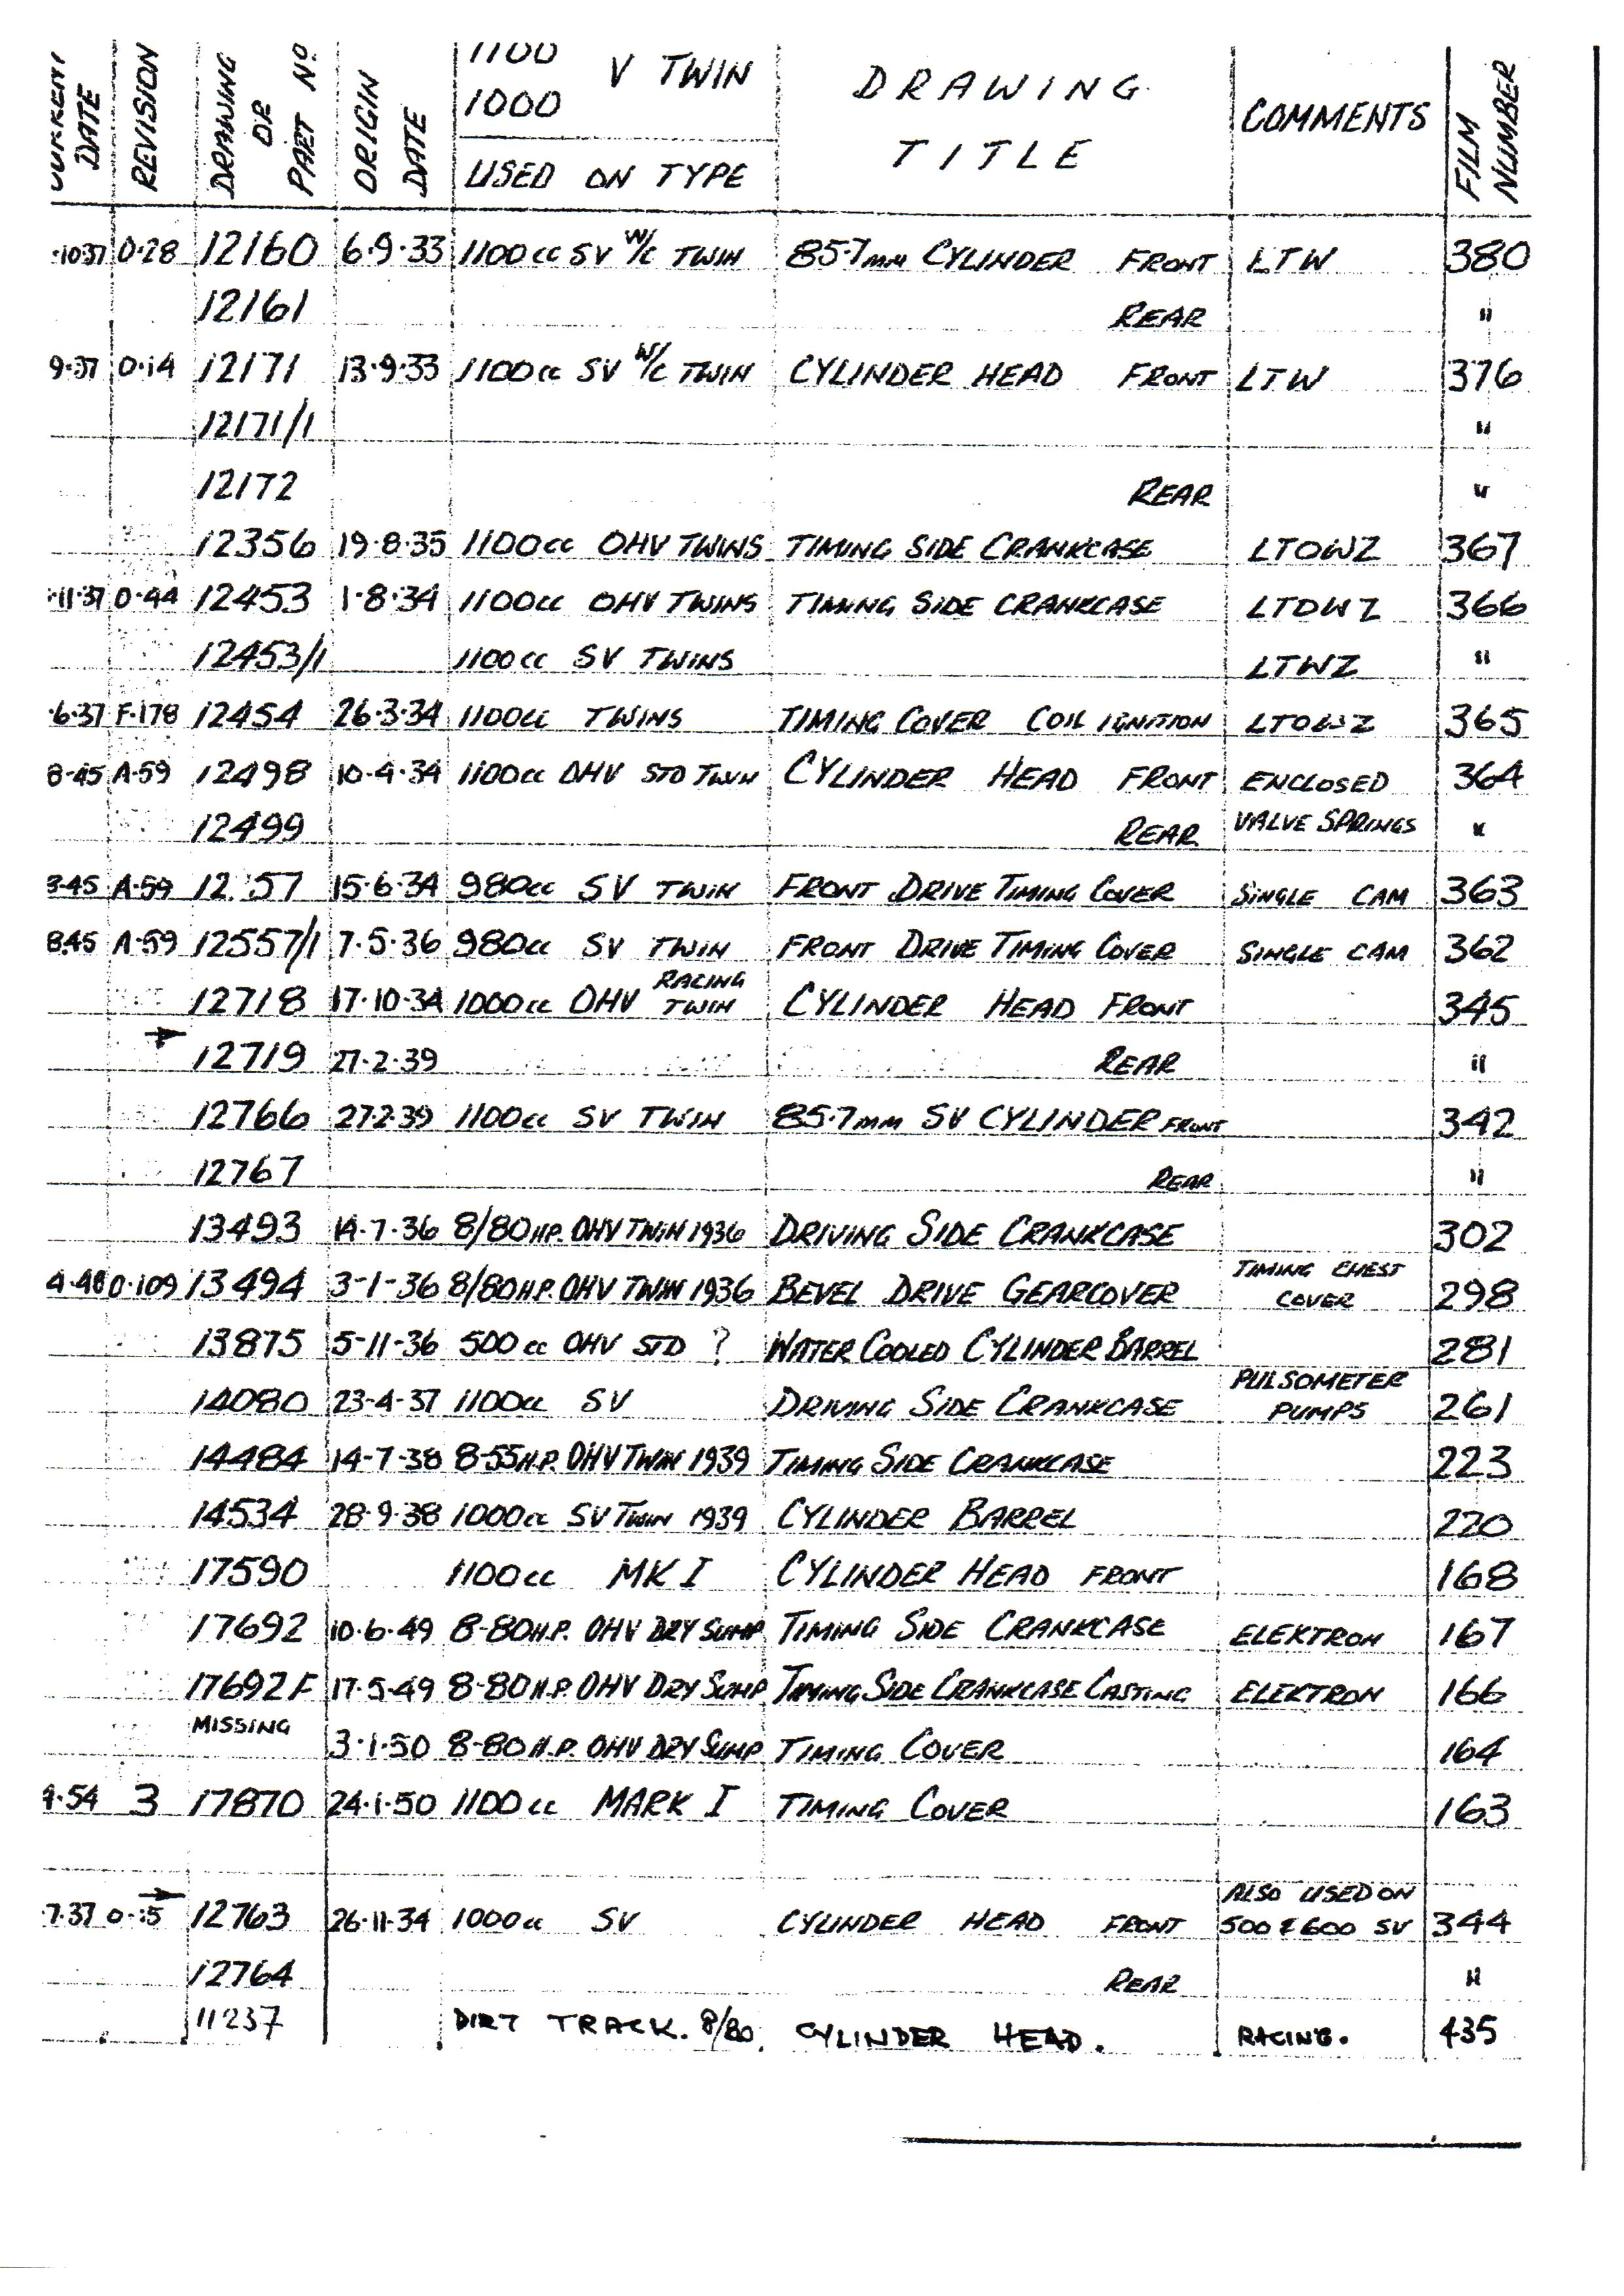 CURRENT DATE REVISION DRAWING OR PART Nº ORIGIN DATE 1100 1000 V TWIN USED ON TYPE DRAWING TITLE COMMENTS FILM NUMBER
·10·37 O·28 12160 6·9·33 1100cc SV W/C TWIN 85·7mm CYLINDER FRONT LTW 380
12161 REAR "
9·37 O·14 12171 13·9·33 1100cc SV W/C TWIN CYLINDER HEAD FRONT LTW 376
12171/1 "
12172 REAR "
12356 19·8·35 1100cc OHV TWINS TIMING SIDE CRANKCASE LTOWZ 367
·11·37 O·44 12453 1·8·34 1100cc OHV TWINS TIMING SIDE CRANKCASE LTOWZ 366
12453/1 1100cc SV TWINS LTWZ "
·6·37 F·178 12454 26·3·34 1100cc TWINS TIMING COVER COIL IGNITION LTOWZ 365
8·45 A·59 12498 10·4·34 1100cc OHV STD TWIN CYLINDER HEAD FRONT ENCLOSED 364
12499 REAR VALVE SPRINGS "
8·45 A·59 12 57 15·6·34 980cc SV TWIN FRONT DRIVE TIMING COVER SINGLE CAM 363
8·45 A·59 12557/1 7·5·36 980cc SV TWIN FRONT DRIVE TIMING COVER SINGLE CAM 362
12718 17·10·34 1000cc OHV RACING TWIN CYLINDER HEAD FRONT 345
→ 12719 27·2·39 REAR "
12766 27·2·39 1100cc SV TWIN 85·7mm SV CYLINDER FRONT 342
12767 REAR "
13493 14·7·36 8/80 H.P. OHV TWIN 1936 DRIVING SIDE CRANKCASE 302
4·48 O·109 13494 3-1-36 8/80 H.P. OHV TWIN 1936 BEVEL DRIVE GEARCOVER TIMING CHEST COVER 298
13875 5-11-36 500cc OHV STD ? WATER COOLED CYLINDER BARREL 281
14080 23-4-37 1100cc SV DRIVING SIDE CRANKCASE PULSOMETER PUMPS 261
14484 14-7-38 8-55 H.P. OHV TWIN 1939 TIMING SIDE CRANKCASE 223
14534 28·9·38 1000cc SV TWIN 1939 CYLINDER BARREL 220
17590 1100cc MK I CYLINDER HEAD FRONT 168
17692 10·6·49 8-80 H.P. OHV DRY SUMP TIMING SIDE CRANKCASE ELEKTRON 167
17692F 17·5·49 8-80 H.P. OHV DRY SUMP TIMING SIDE CRANKCASE CASTING ELEKTRON 166
MISSING 3·1·50 8-80 H.P. OHV DRY SUMP TIMING COVER 164
4·54 3 17870 24·1·50 1100cc MARK I TIMING COVER 163
·7·37 → 12763 26·11·34 1000cc SV CYLINDER HEAD FRONT ALSO USED ON 500 & 600 SV 344
12764 REAR "
11237 DIRT TRACK. 8/80. CYLINDER HEAD. RACING. 435